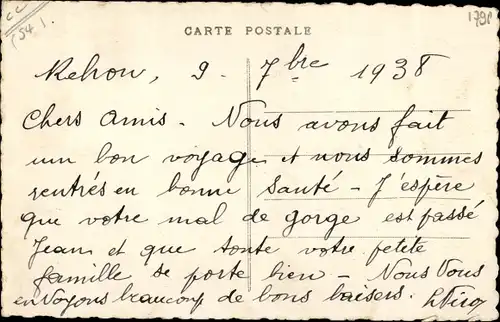 cc
(54).
1791
CARTE POSTALE
Rehon, 9 7bre 1938
Chers Amis - Nous avons fait
un bon voyage et nous sommes
rentrés en bonne santé - J'espère
que votre mal de gorge est passé
Jean et que toute votre petite
famille se porte bien - Nous Vous
envoyons beaucoup de bons baisers.